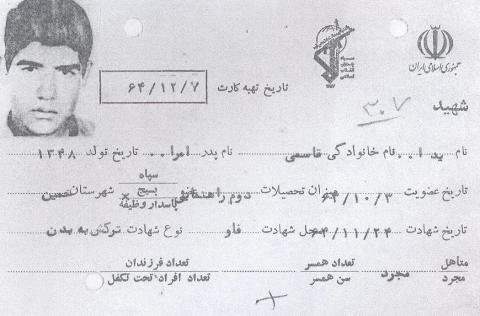 جمهوری اسلامی ایران
تاریخ تهیه کارت ۶۴/۱۲/۷
شهید
۳۰۷
نام یدا... نام خانوادگی قاسمی نام پدر امرا... تاریخ تولد ۱۳۴۸
تاریخ عضویت ۶۴/۱۰/۳ میزان تحصیلات دوم راهنمائی عضو سپاه بسیج × پاسدار وظیفه شهرستان خمین
تاریخ شهادت ۶۴/۱۱/۲۴ محل شهادت فاو نوع شهادت ترکش به بدن
متأهل مجرد مجرد تعداد همسر سن همسر تعداد فرزندان تعداد افراد تحت تکفل